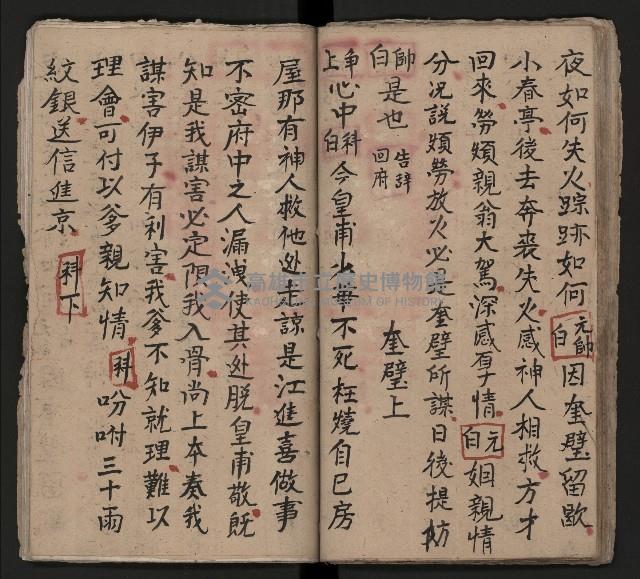 夜如何失火踪跡如何元帥白因奎璧留歇
小春亭後去奔丧失火感神人相救方才
回來勞煩親翁大駕深感厚情元白姻親情
分况説煩勞放火必是奎璧所謀日後提妨
帥白是也告辞回府 奎璧上
净上心中科白今皇甫少華不死枉燒自己房
屋那有神人救他处見諒是江進喜做事
不密府中之人漏洩使其处脱皇甫敬既
知是我謀害必定限我入骨尚上本奏我
謀害伊子有利害我爹不知就理難以
理會可付以爹親知情科吩咐三十兩
紋銀送信進京科下
高雄市立歷史博物館
KAOHSIUNG MUSEUM OF HISTORY